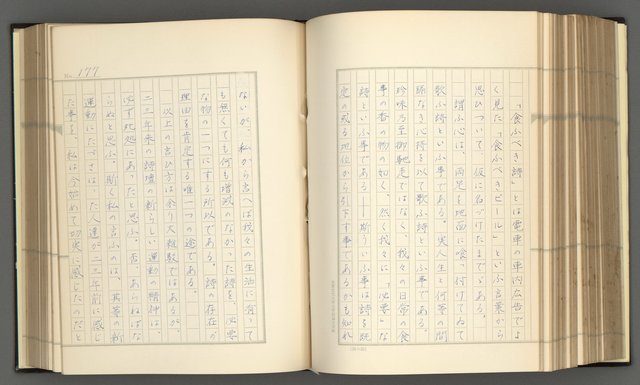 「食ふべき詩」とは電車の車内広告でよ
く見た「食ふべきビール」といふ言葉から
思ひついて、仮に名づけたまでゞある。
謂ふ心は、両足を地面に喰つ付けてゐて
歌ふ詩といふ事である。実人生と何等の間
隔なき心持を以て歌ふ詩といふ事である。
珍味乃至御馳走ではなく、我々の日常の食
事の香の物の如く、然く我々に「必要」な
詩といふ事である――斯ういふ事は詩を既
定の或る地位から引下す事であるかも知れ
ないが、私から言へば我々の生活に有つて
も無くても何も増減のなかつた詩を、必要
な物の一つにする所以である。詩の存在の
理由を肯定する唯一つの途である。
以上の言ひ方は余り大雑駁ではあるが、
二三年来の詩壇の新らしい運動の精神は、
必ず此処にあつたと思ふ。否、あらねばな
らぬと思ふ。斯く私の言ふのは、其等の新
運動にたづさはつた人達が二三年前に感じ
た事を、私は今始めて切実に感じたのだと
No. 177